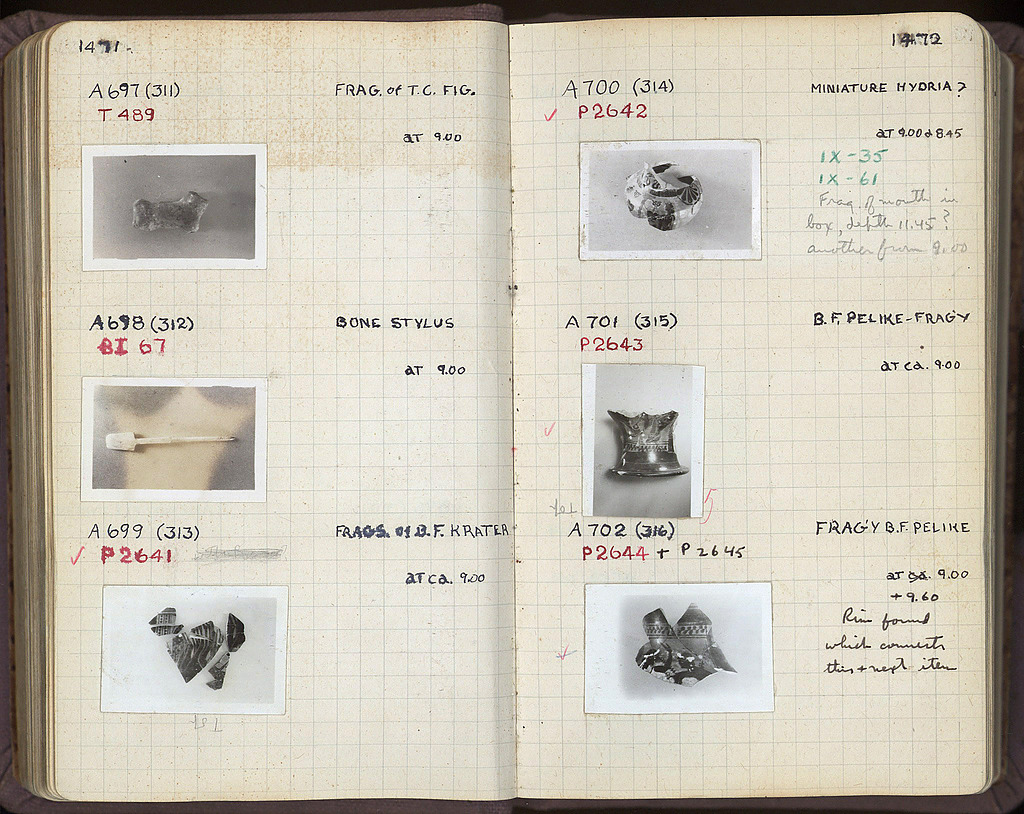 1471.
A 697 (311) FRAG. of T.C. FIG.
T 489
AT 9.00
A 698 (312) BONE STYLUS
BI 67
AT 9.00
A 699 (313) FRAGS. of B.F. KRATER
P 2641
AT ca. 9.00
1472
A 700 (314) MINIATURE HYDRIA?
P 2642
AT 9.00 & 8.45
IX - 35
IX - 61
Frag. of mouth in
box, depth 11.45?
another from 9.00
A 701 (315) B.F. PELIKE - FRAG'Y
P 2643
AT ca. 9.00
5
A 702 (316) FRAG'Y B.F. PELIKE
P 2644 + P 2645
AT ca. 9.00
+ 9.60
Rim found
which connects
this + next item